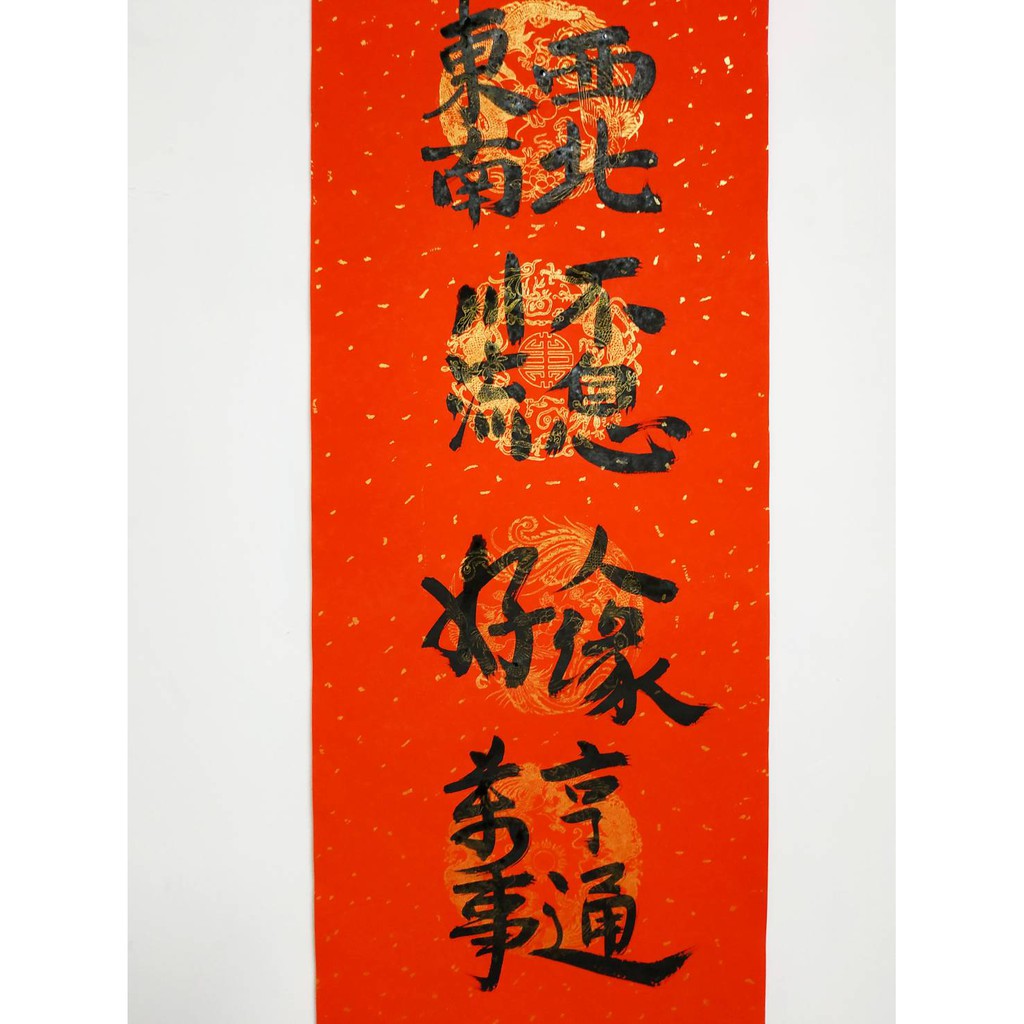 東南西北
川流不息
好人缘
萬事亨通